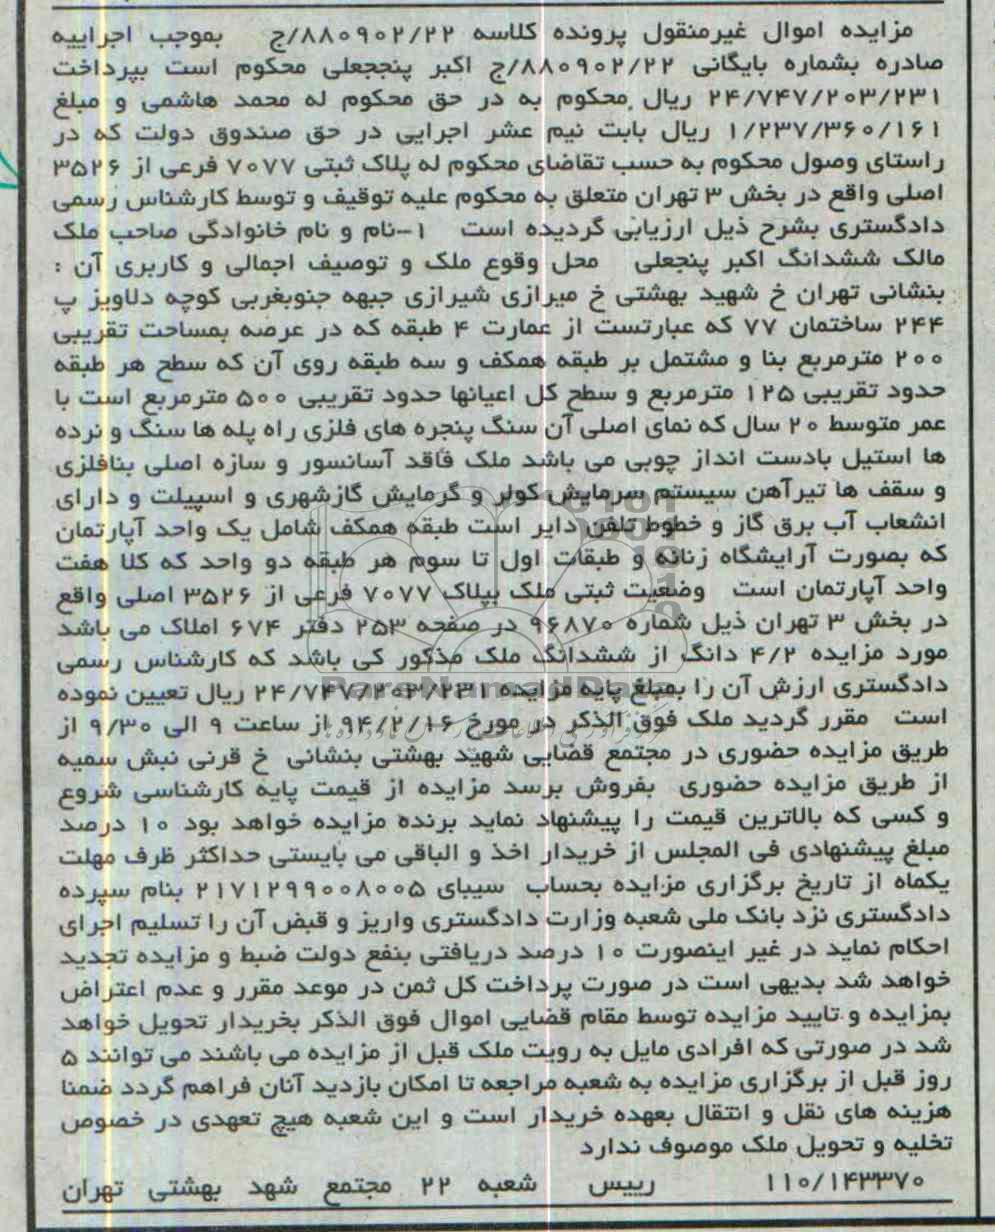 مزایده اموال غیرمنقول پرونده کلاسه ۸۸۰۹۰۲/۲۲/ج بموجب اجراییه
صادره بشماره بایگانی ۸۸۰۹۰۲/۲۲/ج اکبر پنججعلی محکوم است بپرداخت
۲۴/۷۴۷/۲۰۳/۲۳۱ ریال محکوم به در حق محکوم له محمد هاشمی و مبلغ
۱/۲۳۷/۳۶۰/۱۶۱ ریال بابت نیم عشر اجرایی در حق صندوق دولت که در
راستای وصول محکوم به حسب تقاضای محکوم له پلاک ثبتی ۷۰۷۷ فرعی از ۳۵۲۶
اصلی واقع در بخش ۳ تهران متعلق به محکوم علیه توقیف و توسط کارشناس رسمی
دادگستری بشرح ذیل ارزیابی گردیده است ۱-نام و نام خانوادگی صاحب ملک
مالک ششدانگ اکبر پنجعلی محل وقوع ملک و توصیف اجمالی و کاربری آن :
بنشانی تهران خ شهید بهشتی خ میرازی شیرازی جبهه جنوبغربی کوچه دلاویز پ
۲۴۴ ساختمان ۷۷ که عبارتست از عمارت ۴ طبقه که در عرصه بمساحت تقریبی
۲۰۰ مترمربع بنا و مشتمل بر طبقه همکف و سه طبقه روی آن که سطح هر طبقه
حدود تقریبی ۱۲۵ مترمربع و سطح کل اعیانها حدود تقریبی ۵۰۰ مترمربع است با
عمر متوسط ۲۰ سال که نمای اصلی آن سنگ پنجره های فلزی راه پله ها سنگ و نرده
ها استیل بادست انداز چوبی می باشد ملک فاقد آسانسور و سازه اصلی بنافلزی
و سقف ها تیرآهن سیستم سرمایش کولر و گرمایش گازشهری و اسپیلت و دارای
انشعاب آب برق گاز و خطوط تلفن دایر است طبقه همکف شامل یک واحد آپارتمان
که بصورت آرایشگاه زنانه و طبقات اول تا سوم هر طبقه دو واحد که کلا هفت
واحد آپارتمان است وضعیت ثبتی ملک بپلاک ۷۰۷۷ فرعی از ۳۵۲۶ اصلی واقع
در بخش ۳ تهران ذیل شماره ۹۶۸۷۰ در صفحه ۲۵۳ دفتر ۶۷۴ املاک می باشد
مورد مزایده ۴/۲ دانگ از ششدانگ ملک مذکور کی باشد که کارشناس رسمی
دادگستری ارزش آن را بمبلغ پایه مزایده ۲۴/۷۴۷/۲۰۳/۲۳۱ ریال تعیین نموده
است مقرر گردید ملک فوق الذکر در مورخ ۹۴/۲/۱۶ از ساعت ۹ الی ۹/۳۰ از
طریق مزایده حضوری در مجتمع قضایی شهید بهشتی بنشانی خ قرنی نبش سمیه
از طریق مزایده حضوری بفروش برسد مزایده از قیمت پایه کارشناسی شروع
و کسی که بالاترین قیمت را پیشنهاد نماید برنده مزایده خواهد بود ۱۰ درصد
مبلغ پیشنهادی فی المجلس از خریدار اخذ و الباقی می بایستی حداکثر ظرف مهلت
یکماه از تاریخ برگزاری مزایده بحساب سیبای ۲۱۷۱۲۹۹۰۰۸۰۰۵ بنام سپرده
دادگستری نزد بانک ملی شعبه وزارت دادگستری واریز و قبض آن را تسلیم اجرای
احکام نماید در غیر اینصورت ۱۰ درصد دریافتی بنفع دولت ضبط و مزایده تجدید
خواهد شد بدیهی است در صورت پرداخت کل ثمن در موعد مقرر و عدم اعتراض
بمزایده و تایید مزایده توسط مقام قضایی اموال فوق الذکر بخریدار تحویل خواهد
شد در صورتی که افرادی مایل به رویت ملک قبل از مزایده می باشند می توانند ۵
روز قبل از برگزاری مزایده به شعبه مراجعه تا امکان بازدید آنان فراهم گردد ضمنا
هزینه های نقل و انتقال بعهده خریدار است و این شعبه هیچ تعهدی در خصوص
تخلیه و تحویل ملک موصوف ندارد
۱۱۰/۱۴۳۳۷۰ رییس شعبه ۲۲ مجتمع شهد بهشتی تهران
ParsNamadData